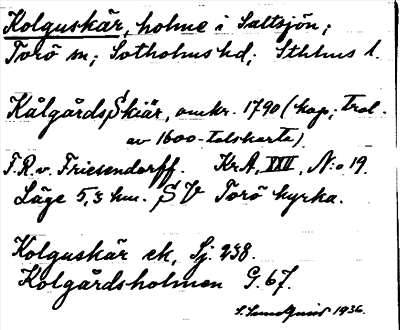 Kolguskär, holme i Saltsjön;
Torö sn; Sotholms hd; Sthlms l.
Kålgårds Skiär, omkr. 1790 (kop; trol.
av 1600-talskarta)
F.R.v. Friesendorff. KrA, XXII, N:o 19.
Läge 5,3 km. SV Torö kyrka.
Kolguskär ek, Sj. 238.
Kolgårdsholmen G. 67.
1936.